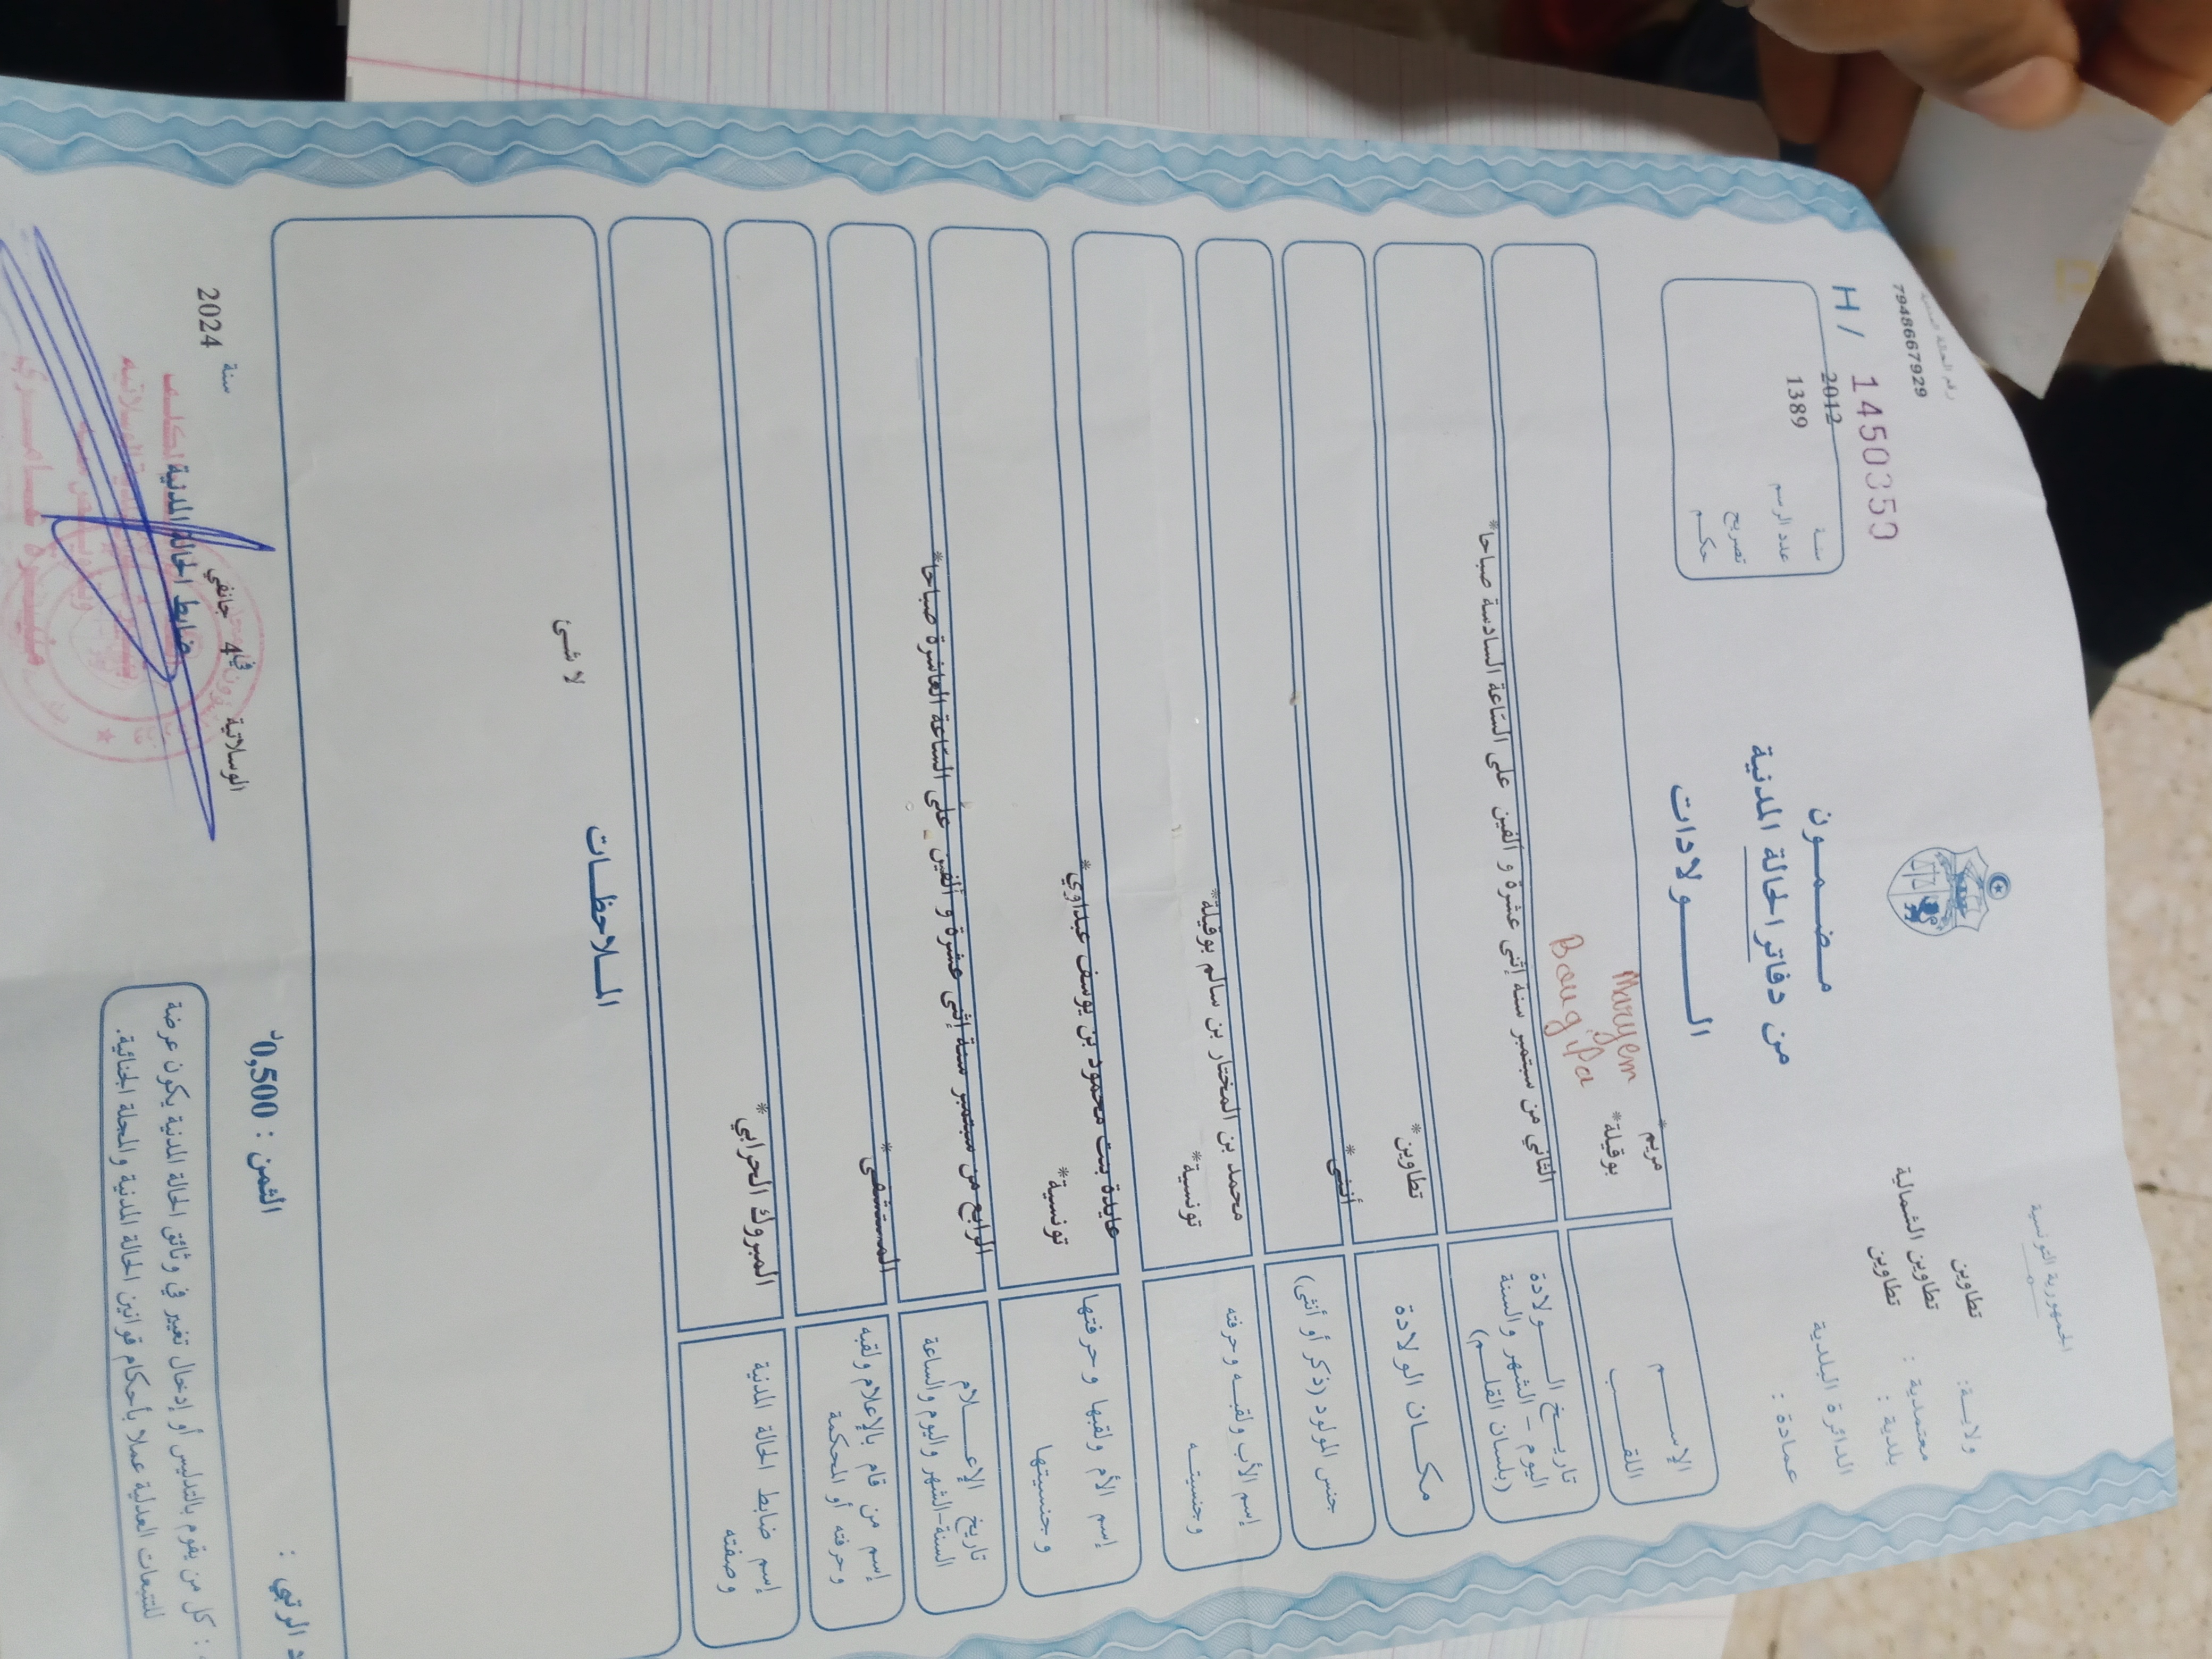 الجمهورية التونسية
ولايـــة: تطاوين
معتمدية : تطاوين الشمالية
بلدية : تطاوين
الدائرة البلدية
عمادة :
رقم الحالة المدنية
79486679​29
H / 1450350
سنـة 2012
عدد الرسم 1389
تصريح
حكــم
مـضـمــون
من دفاتر الحالة المدنية
الـــــولادات
الإســــم مريم*
اللقـــب بوقيلة*
Maryem
Bougila
تاريــخ الــــولادة
اليوم - الشهر والسنة
(بلسان القلــم)
الثاني من سبتمبر سنة إثنى عشرة و ألفين على الساعة السادسة صباحا*
مكــان الولادة تطاوين*
جنس المولود (ذكر أو أنثى) أنثى*
إسم الأب ولقبـه وحرفته محمد بن المختار بن سالم بوقيلة*
وجنسيتــه تونسية*
إسم الأم ولقبها وحرفتها عايدة بنت محمود بن يوسف عبداوي*
و جنسيتها تونسية*
تاريخ الإعــــلام
السنة-الشهر واليوم والساعة
الرابع من سبتمبر سنة إثنى عشرة و ألفين على الساعة العاشرة صباحا*
إسم من قام بالإعلام ولقبه
وحرفته أو المحكمة
المستشفى*
إسم ضابط الحالة المدنية
وصفته
المبروك الحرابي*
المــلاحظــات
لا شئ
الثمن : 0,500د
الوسلاتية في 4 جانفي سنة 2024
ضابط الحالة المدنية
د الرتبي :
: كل من يقوم بالتدليس أو إدخال تغيير في وثائق الحالة المدنية يكون عرضة
للتتبعات العدلية عملا بأحكام قوانين الحالة المدنية والمجلة الجنائية.